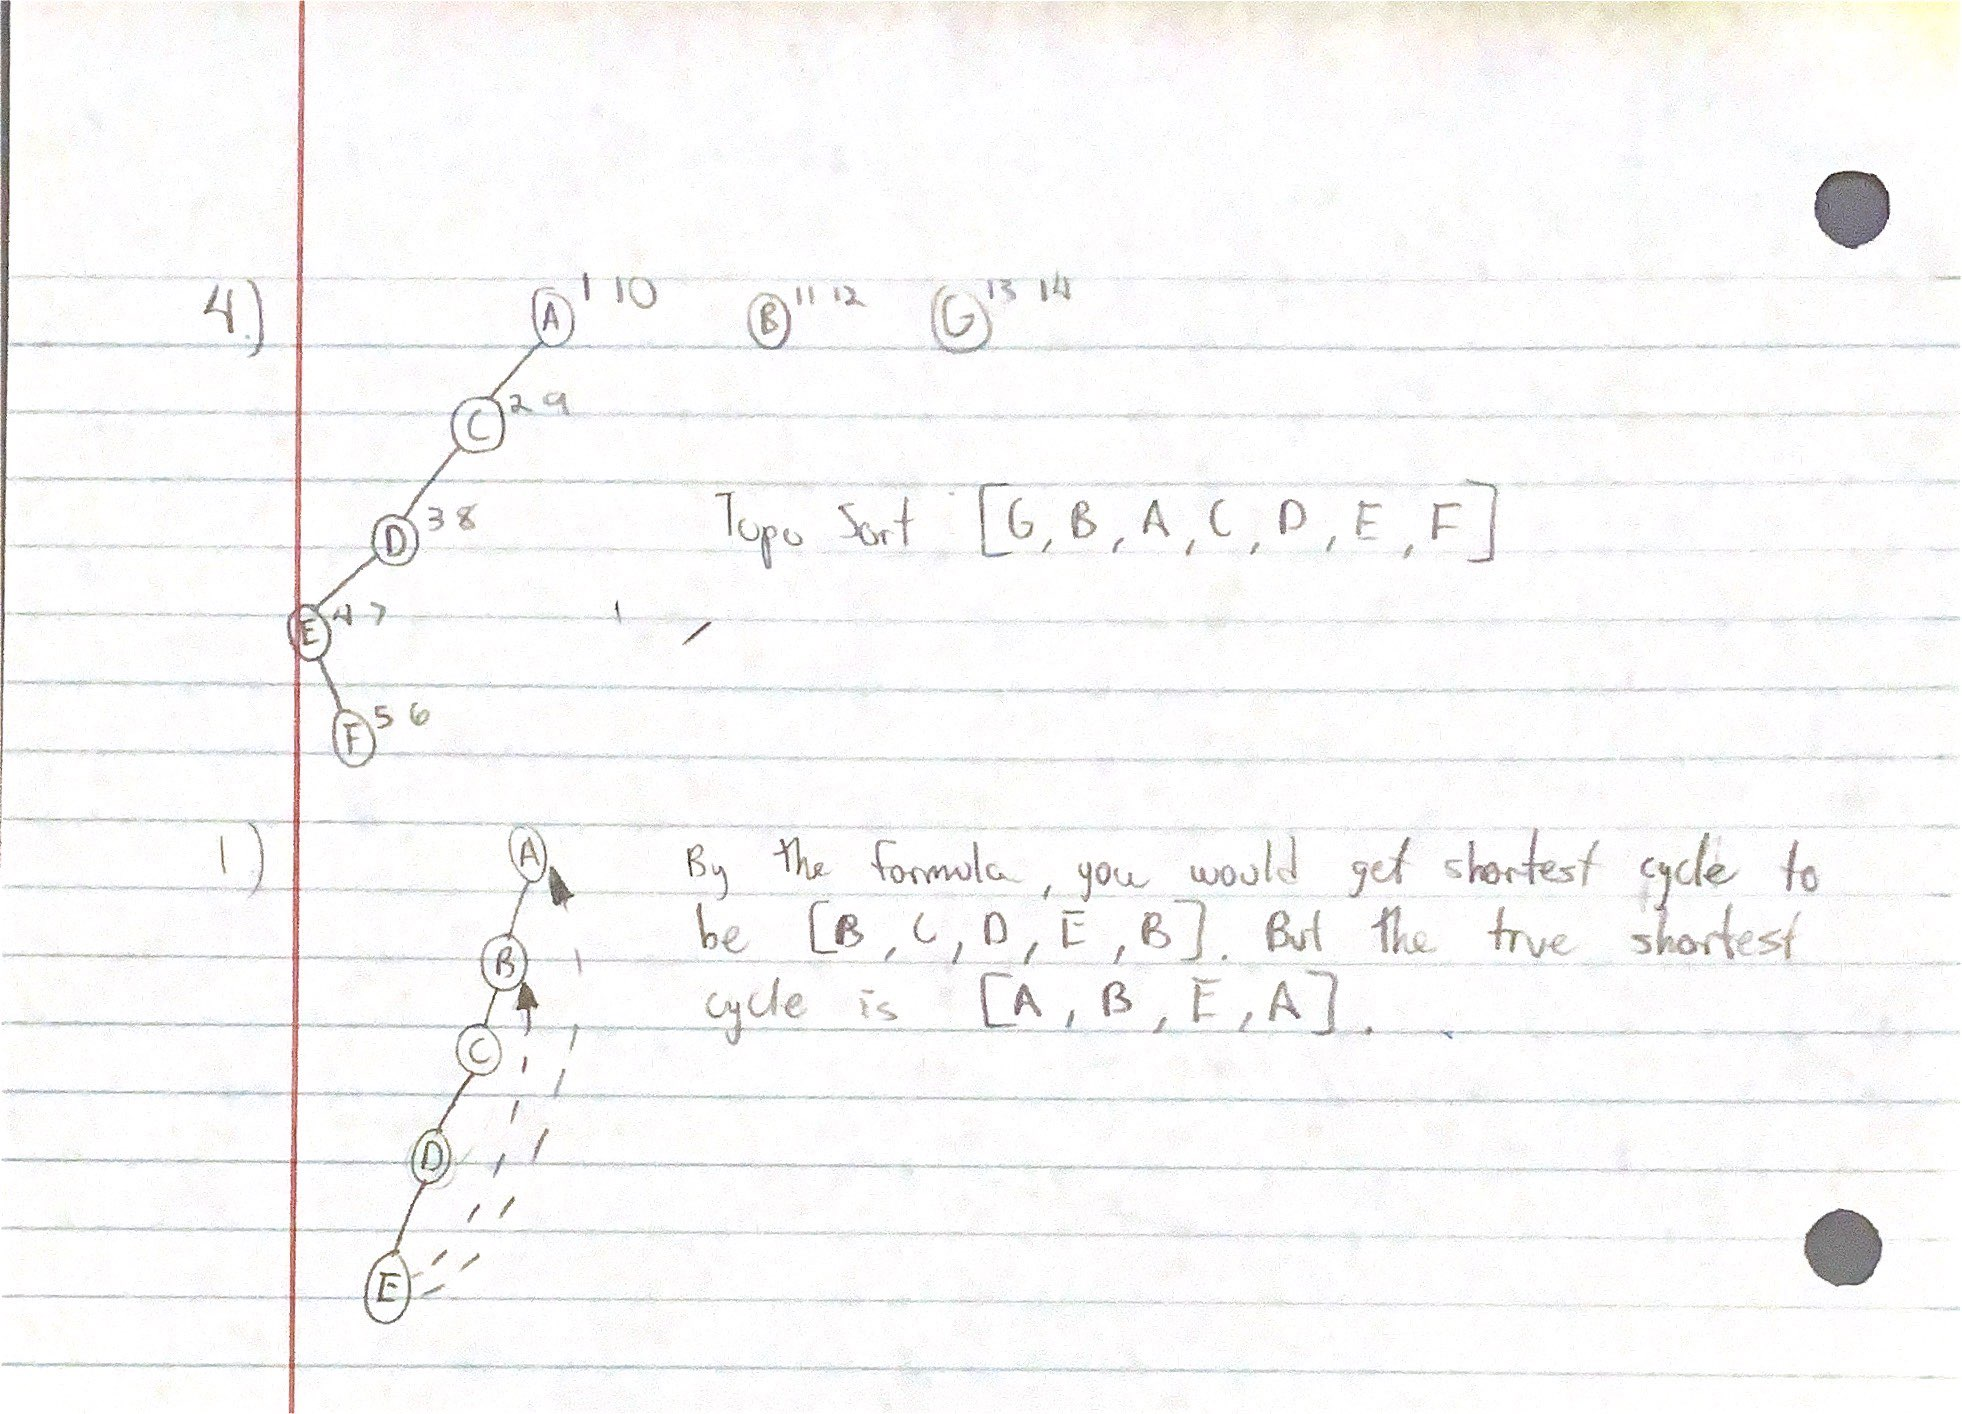 4.)
A 1 10 B 11 12 G 13 14
C 2 9
D 3 8
Topo Sort [G, B, A, C, D, E, F]
E 4 7
F 5 6
1)
A
By the formula, you would get shortest cycle to
be [B, C, D, E, B]. But the true shortest
B
cycle is [A, B, E, A].
C
D
E